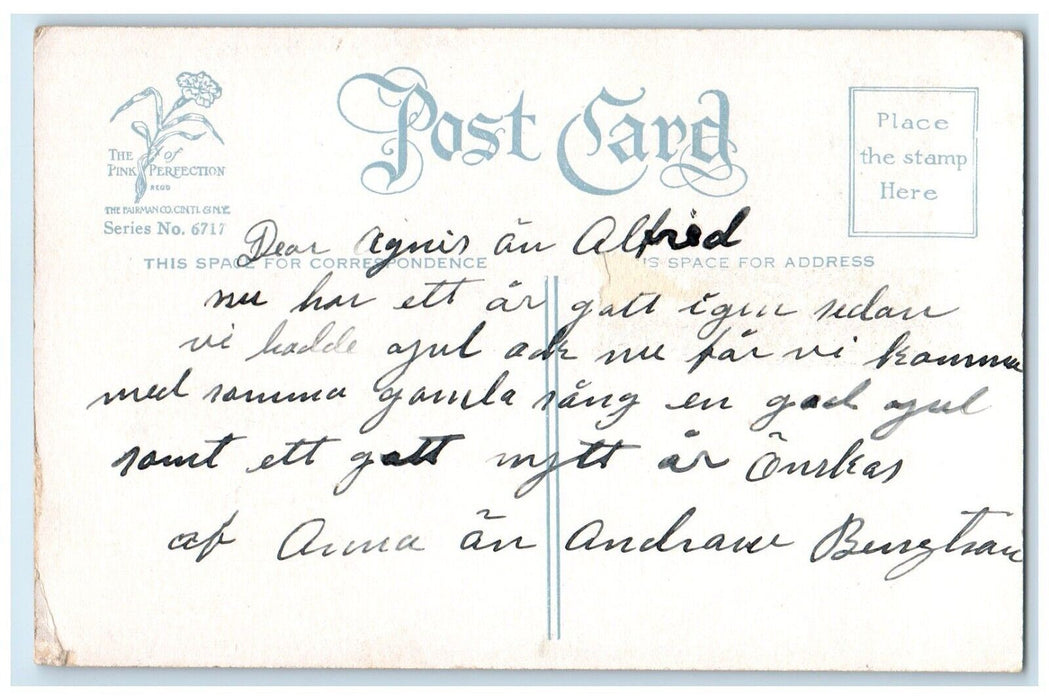 THE of
PINK PERFECTION
REGD
THE FAIRMAN CO. CIN'TI. & N.Y.
Series No. 6717
Post Card
Place
the stamp
Here
THIS SPACE FOR CORRESPONDENCE
IS SPACE FOR ADDRESS
Dear Agnis än Alfrid
nu har ett år gått igen sedan
vi hadde ajul ack nu får vi komma
med samma gamla sång en god ajul
samt ett gått nytt år Önskas
af Anna än Andraw Bengtsan